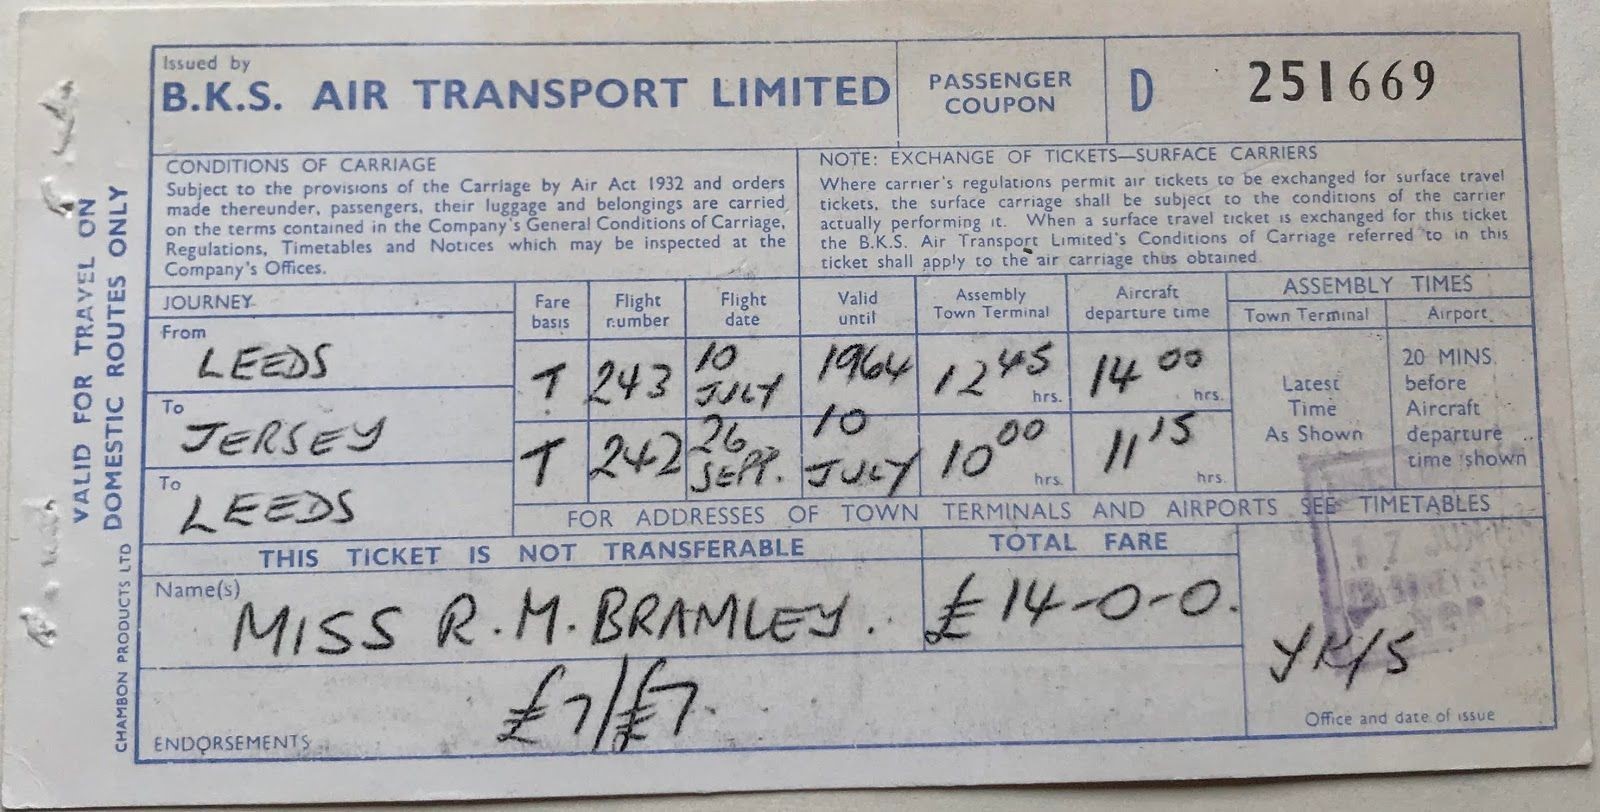 Issued by
B.K.S. AIR TRANSPORT LIMITED
PASSENGER
COUPON
D
251669
CONDITIONS OF CARRIAGE
Subject to the provisions of the Carriage by Air Act 1932 and orders
made thereunder, passengers, their luggage and belongings are carried
on the terms contained in the Company's General Conditions of Carriage,
Regulations, Timetables and Notices which may be inspected at the
Company's Offices.
NOTE: EXCHANGE OF TICKETS—SURFACE CARRIERS
Where carrier's regulations permit air tickets to be exchanged for surface travel
tickets, the surface carriage shall be subject to the conditions of the carrier
actually performing it. When a surface travel ticket is exchanged for this ticket
the B.K.S. Air Transport Limited's Conditions of Carriage referred to in this
ticket shall apply to the air carriage thus obtained
JOURNEY
Fare
basis
Flight
number
Flight
date
Valid
until
Assembly
Town Terminal
Aircraft
departure time
ASSEMBLY TIMES
Town Terminal
Airport
From
LEEDS
T
243
10
JULY
1964
12 45
hrs.
14 00
hrs.
To
JERSEY
T
242
26
SEPT.
10
JULY
10 00
hrs.
11 15
hrs.
To
LEEDS
Latest
Time
As Shown
20 MINS.
before
Aircraft
departure
time shown
FOR ADDRESSES OF TOWN TERMINALS AND AIRPORTS SEE TIMETABLES
THIS TICKET IS NOT TRANSFERABLE
TOTAL FARE
Name(s)
MISS R.M. BRAMLEY.
£14-0-0.
£7/£7.
ENDORSEMENTS
17 JUN
YK/S
Office and date of issue
VALID FOR TRAVEL ON
DOMESTIC ROUTES ONLY
CHAMBON PRODUCTS LTD